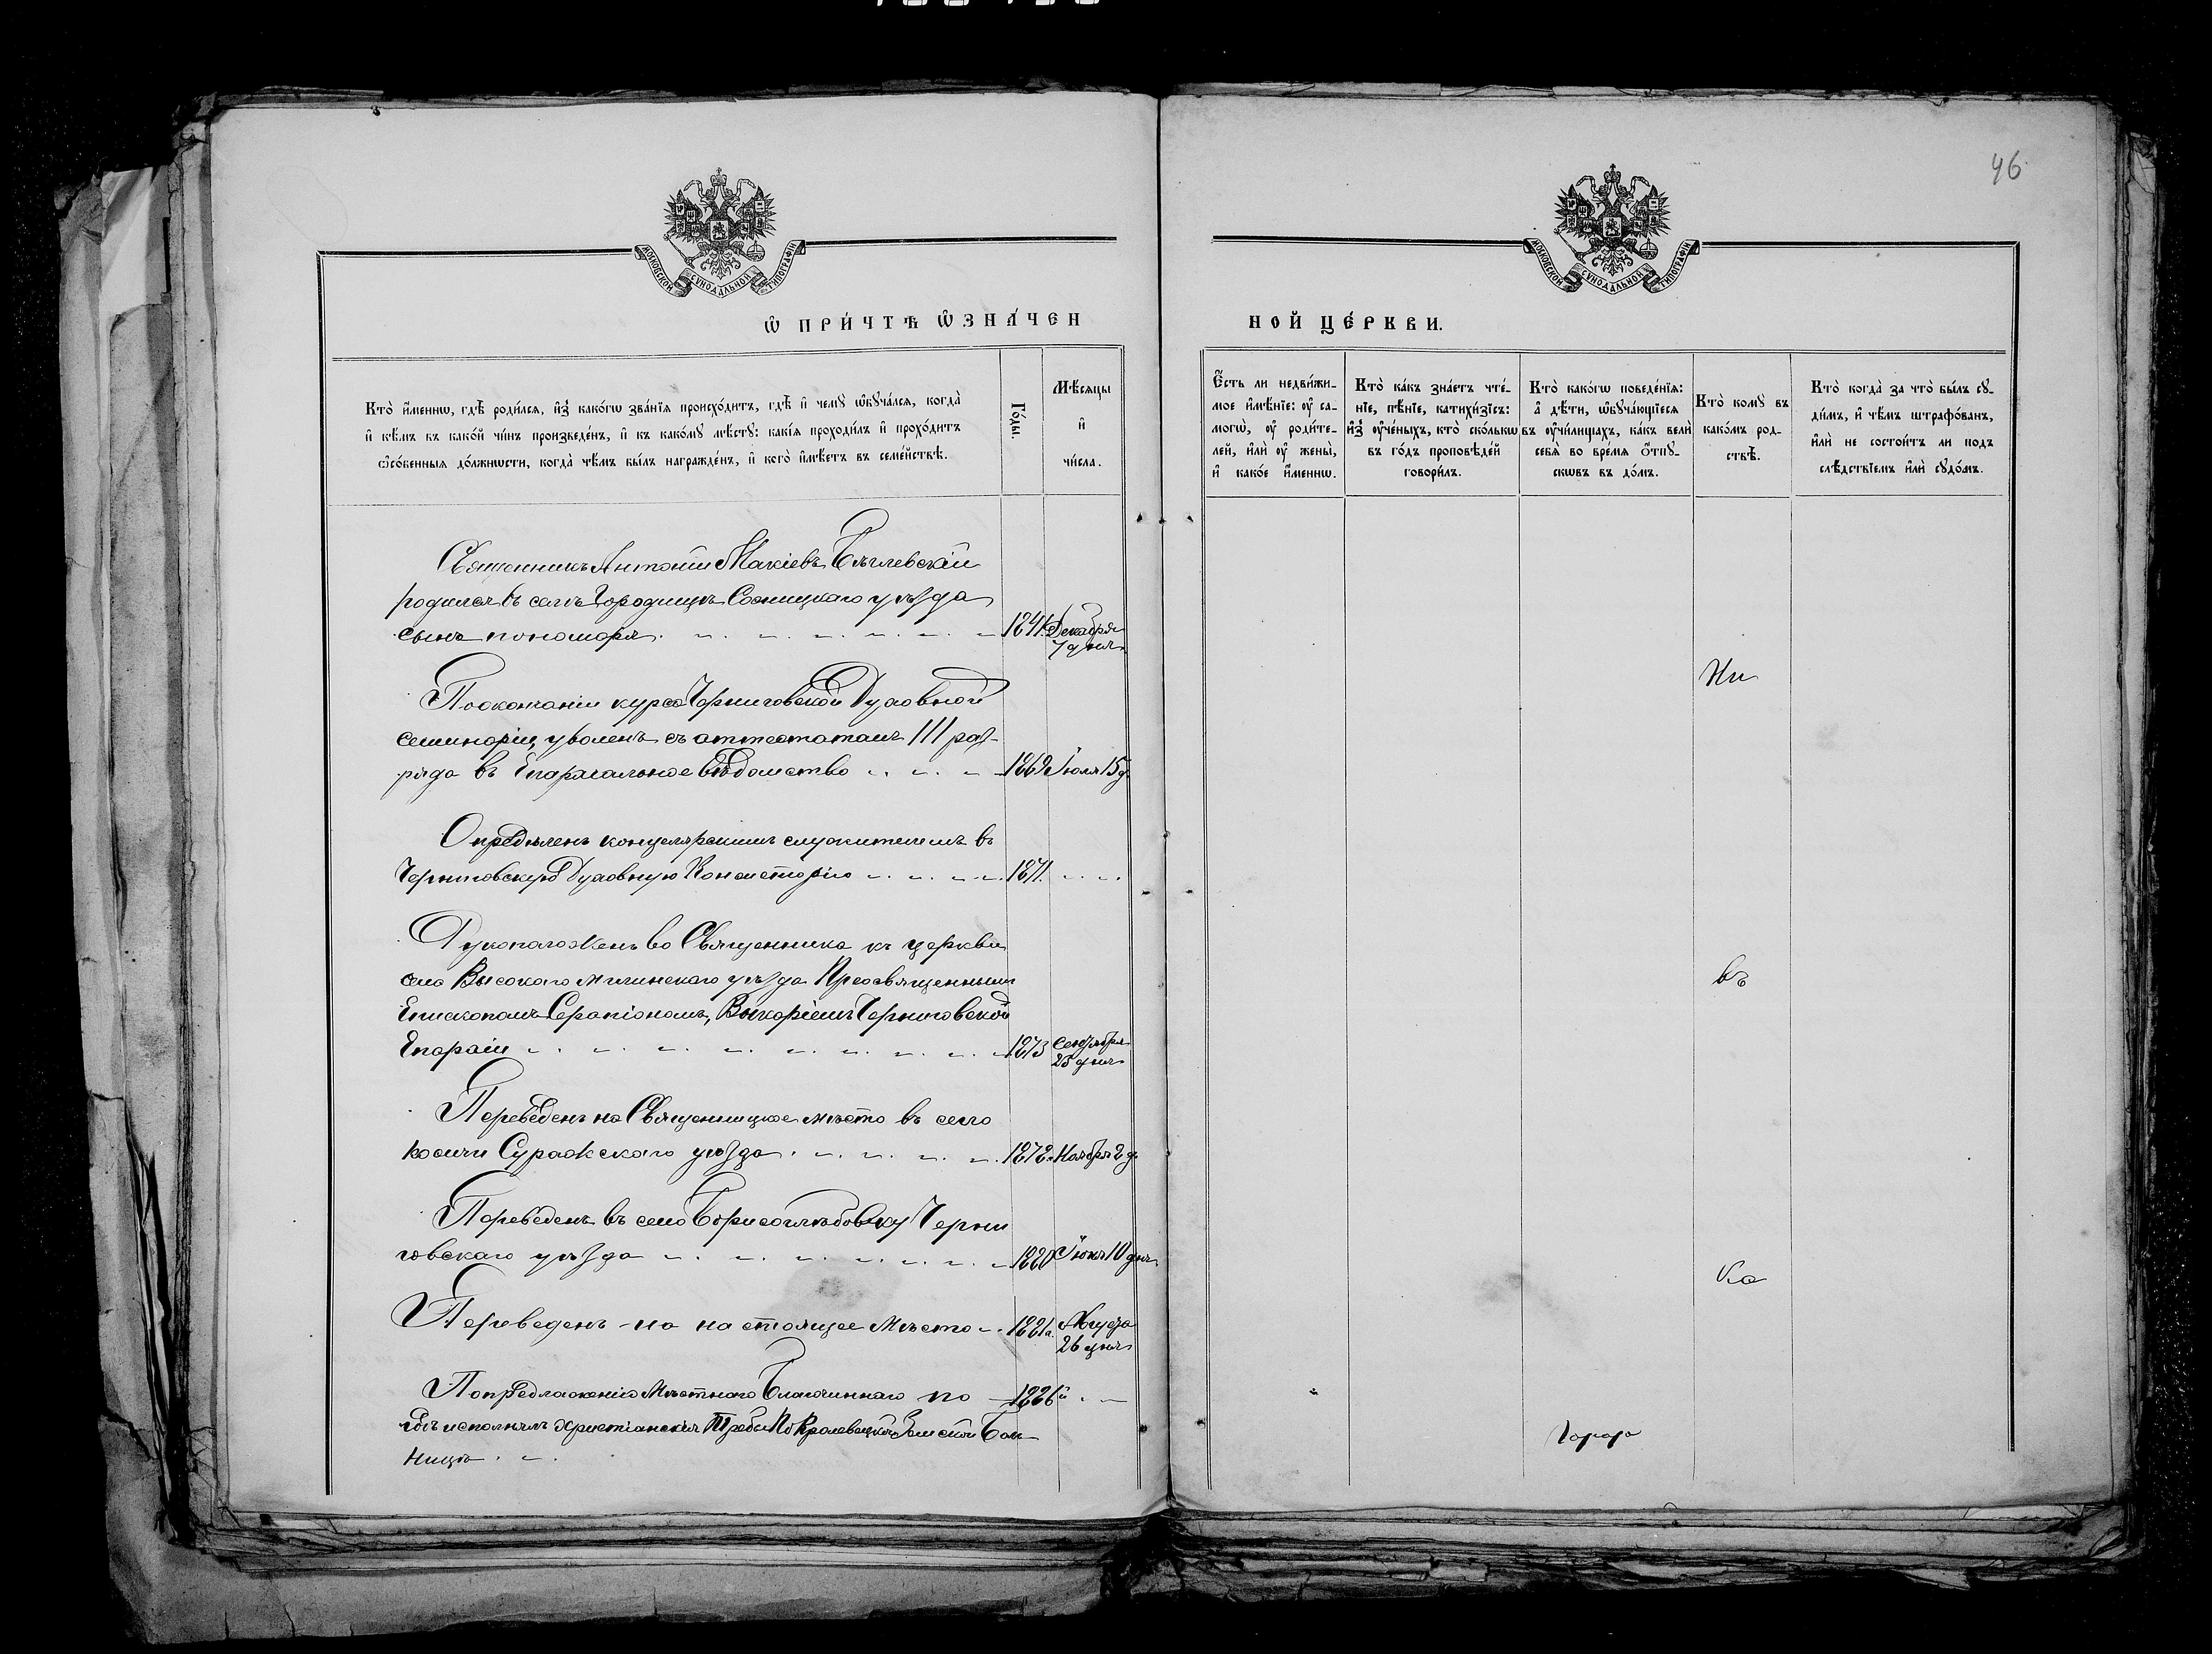 46
МОСКОВСКОЙ СѴНОДАЛЬНОЙ ТИПОГРАФІИ
МОСКОВСКОЙ СѴНОДАЛЬНОЙ ТИПОГРАФІИ
Ѡ ПРИ́ЧТѢ ѠЗНА́ЧЕН
НОЙ ЦЕ́РКВИ.
Кто̀ и҆́менно, гдѣ̀ роди́лся, и҆з̾ како́гѡ зва́нїя происхо́дитъ, гдѣ̀ и҆ чемꙋ̀ ѡ҆бꙋча́лся, когда̀
и҆ кѣ́мъ въ како́й чи́нъ произведе́нъ, и҆ къ како́мꙋ мѣ́стꙋ: какі́я проходи́лъ и҆ прохо́дитъ
ѡ҆со́бенныя до́лжнѡсти, когда̀ чѣ́мъ бы́лъ награжде́нъ, и҆ кого̀ и҆мѣ́етъ въ семе́йствѣ.
Го́ды.
Мѣ́сяцы
и҆
чи́сла.
Є҆́сть ли недви́жи-
мое и҆мѣ́нїе: ᲂу҆ са-
могѡ̀, ᲂу҆ роди́те-
лей, и҆лѝ ᲂу҆ жены̀,
и҆ како́е и҆́меннѡ.
Кто̀ ка́къ зна́етъ чте́-
нїе, пѣ́нїе, катихи́зїсъ:
и҆з̾ ᲂу҆че́ныхъ, кто̀ ско́лькѡ
въ го́дъ проповѣ́дей
говори́лъ.
Кто̀ како́гѡ поведе́нїя:
а҆ дѣ́ти, ѡ҆бꙋча́ющїеся
въ ᲂу҆чи́лищахъ, ка́къ велѝ
себѧ̀ во вре́мя ѿпꙋ-
сковъ въ до́мъ.
Кто̀ комꙋ̀ въ
како́мъ род-
ствѣ̀.
Кто̀ когда̀ за что̀ бы́лъ сꙋ-
ди́мъ, и҆ чѣ́мъ штрафо́ванъ,
и҆лѝ не состои́тъ ли подъ
слѣ́дствїемъ и҆лѝ сꙋдо́мъ.
Священникъ Антоній
родился въ селѣ Городищѣ Сосницкаго уѣзда
сынъ пономоря 1841 Декабря 7 дня
По окончаніи курса Черниговской Духовной
семинаріи, уволенъ съ аттестатомъ III раз-
ряда въ Епархіальное вѣдомство 1869 Іюля 15 д.
Опредѣленъ канцелярскимъ служителемъ въ
Черниговскую Духовную Консисторію 1871.
Рукоположенъ во Священника къ церкви
села Высокаго Мглинскаго уѣзда Преосвященнымъ
Епископомъ Серапіономъ, Викаріемъ Черниговской
Епархіи 1873 Сентября 23 дня
Переведенъ на Священницкое мѣсто въ село
Косичи Суражскаго уѣзда Ноября 2 д.
Переведенъ въ село Борисоглѣбовку Черни
говскаго уѣзда 1880 10 дня
Переведенъ на настоящее мѣсто 1881 Августа 26 дня
По предложенію Мѣстнаго Благочиннаго по 1886
исполнялъ Христіанскія Требы По Кролевецкой Земской Боль
ницѣ
Ни
въ
ка